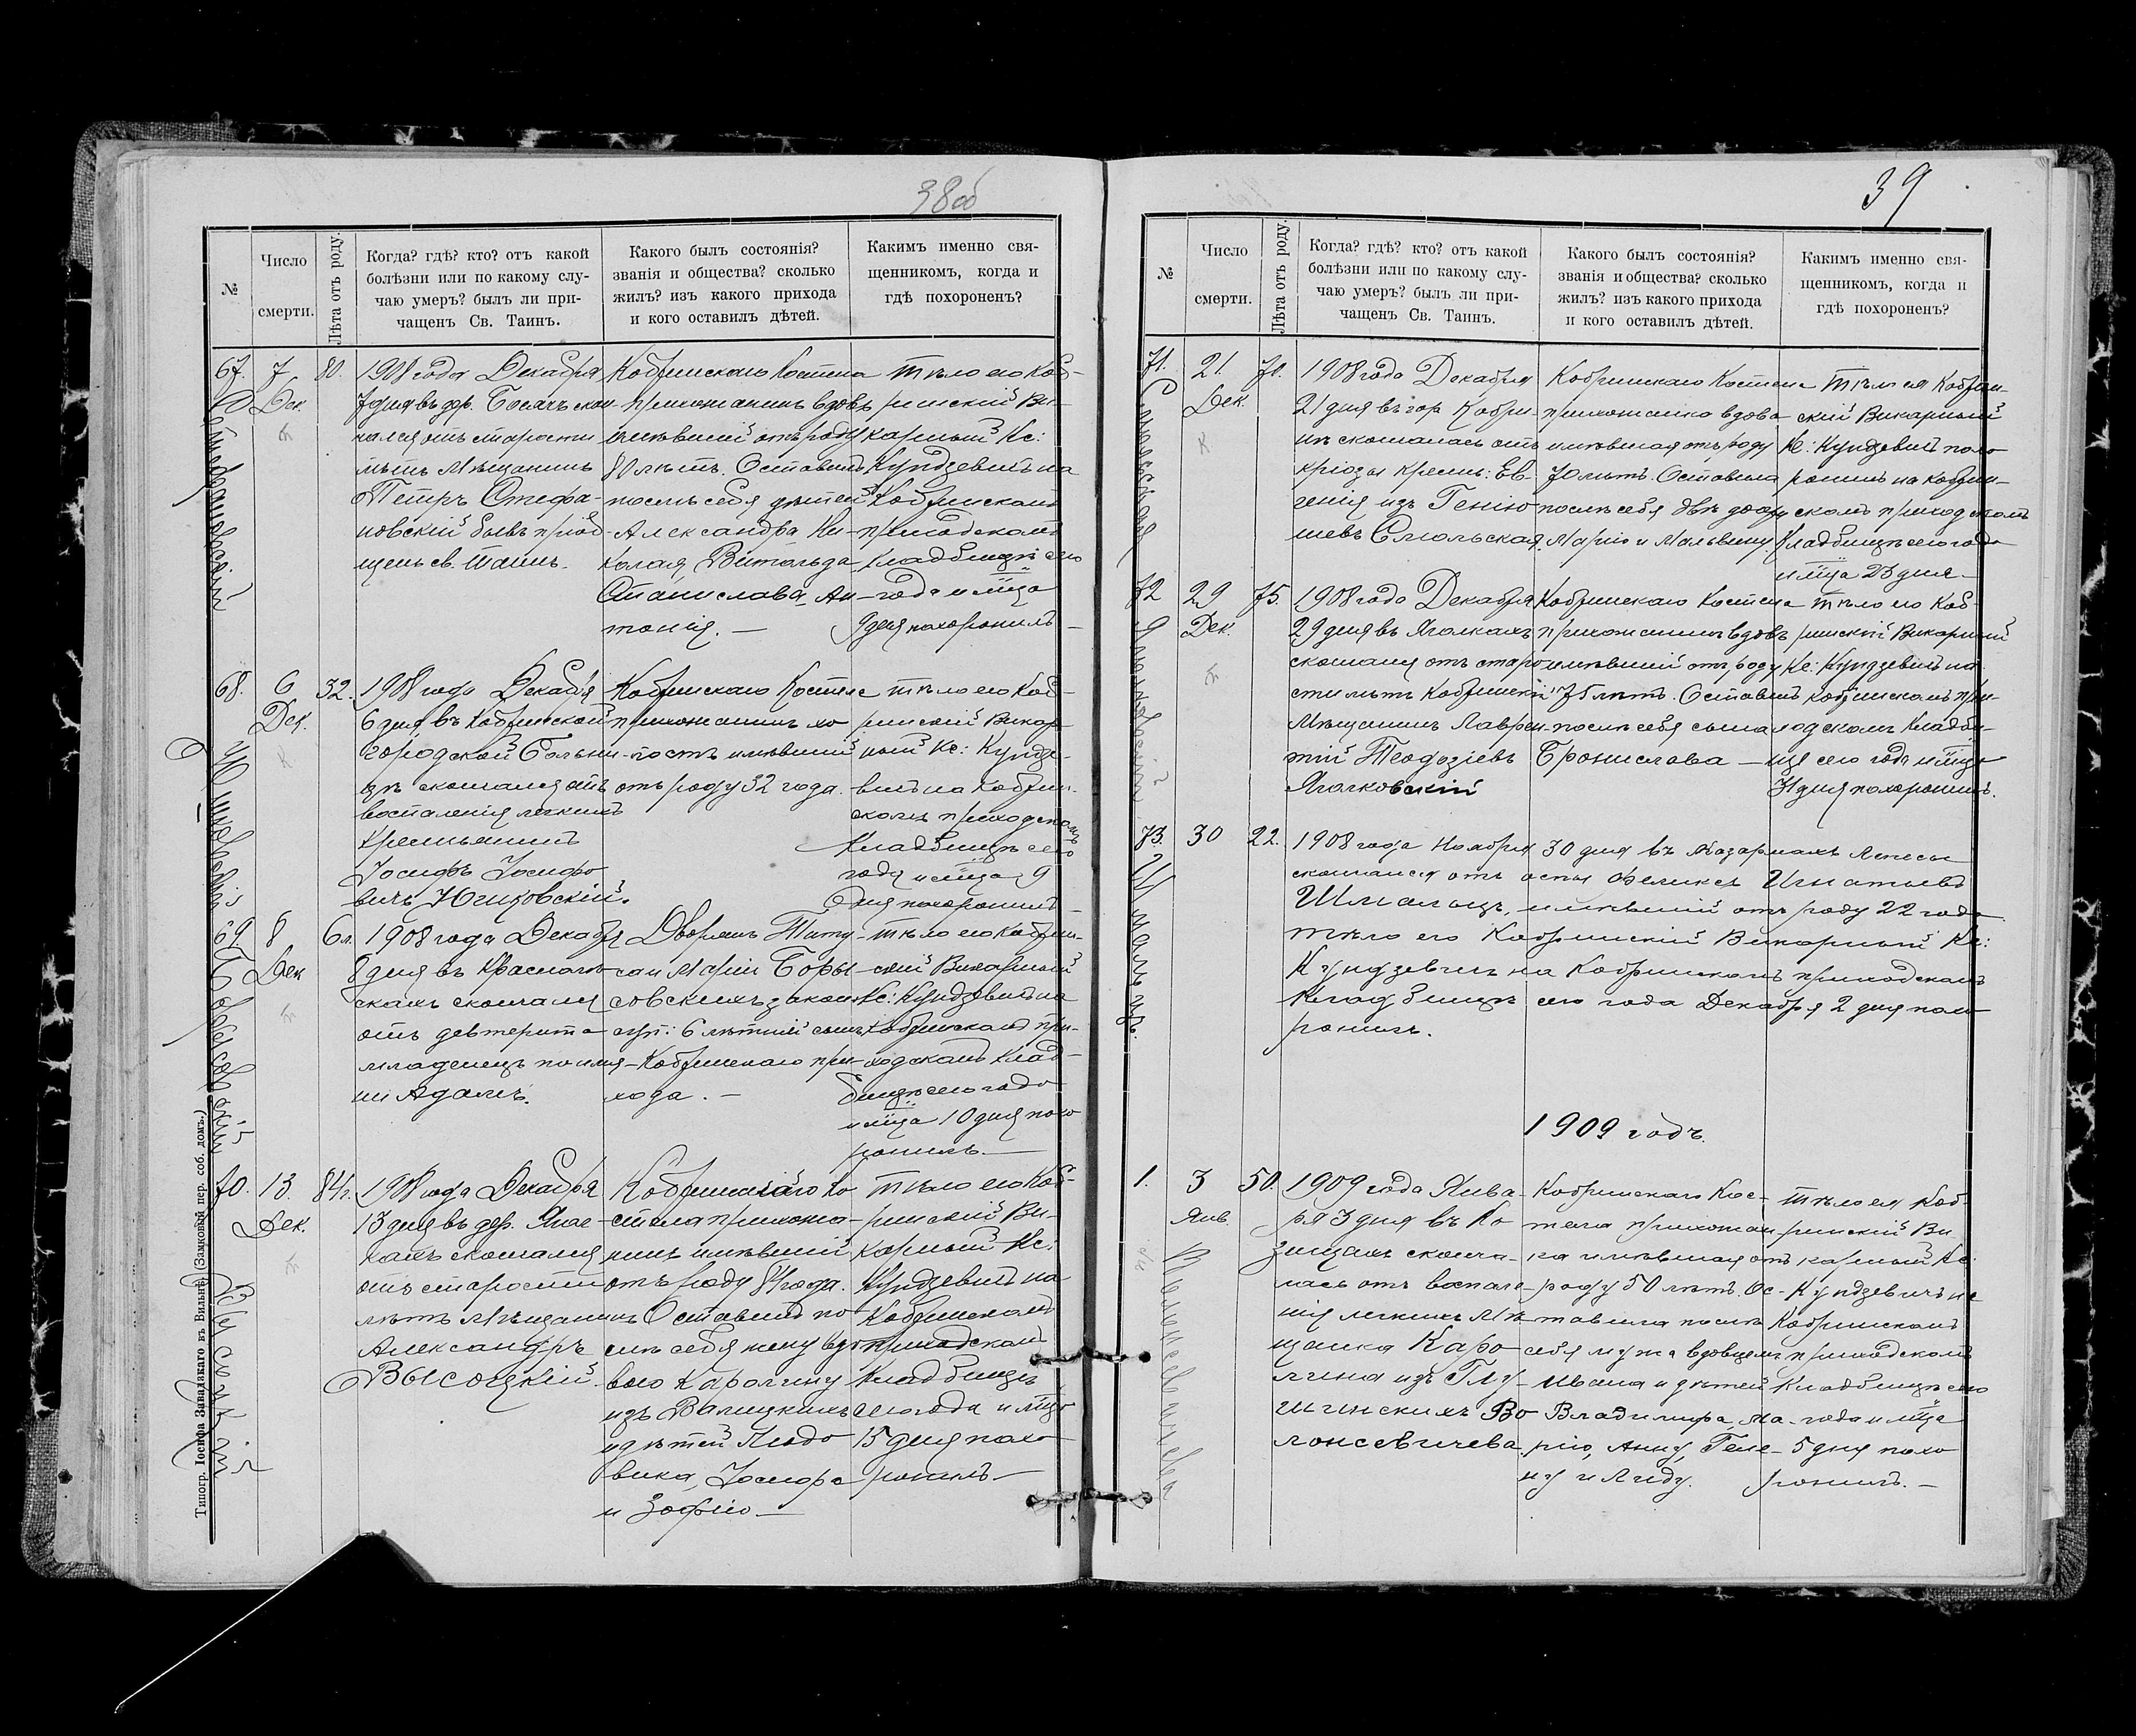 38об
№
Число
смерти.
Лѣта отъ роду.
Когда? гдѣ? кто? отъ какой
болѣзни или по какому слу-
чаю умеръ? былъ ли при-
чащенъ Св. Таинъ.
Какого былъ состоянія?
званія и общества? сколько
жилъ? изъ какого прихода
и кого оставилъ дѣтей.
Какимъ именно свя-
щенникомъ, когда и
гдѣ похороненъ?
67.
7
Дек.
80.
1908 года Декабря
7 дня въ дер.
чался отъ старости
лѣтъ Мѣщанинъ
Петръ Стефа-
новскій бывъ приоб-
щенъ св. Таинъ.
Кобринскаго Костела
прихожанинъ вдовъ
имѣвшій отъ роду
80 лѣтъ. Оставилъ
послѣ себя дѣтей
Александра Ни-
колая, Витольда
Станислава, Ан-
тонія. —
тѣло его Коб-
ринскій Ви-
карный Кс:
Кундзевичъ на
Кобринскомъ
приходскомъ
кладбищѣ сего
года и мѣсца
9 дня похоронилъ —
Стефановскій
68.
6
Дек.
32.
1908 года Декабря
6 дня въ Кобринской
городской Больни-
цѣ скончался отъ
воспаленія легкихъ
Крестьянинъ
Іосифъ Іосифо
вичъ
Кобринскаго Костела
прихожанинъ хо
лостъ имѣвшій
отъ роду 32 года.
тѣло его Коб-
ринскій Викар
ный Кс: Кундзе-
вичъ на Кобрин-
скомъ приходскомъ
Кладбищѣ сего
года и мѣсца 9
дня похоронилъ —
69.
8
Дек
6 л.
1908 года Декабря
8 дня въ
скахъ скончался
отъ дефтерита
младенецъ по име-
ни Адамъ.
Дворянъ
Маріи Боры-
совскихъ закон:
супр: 6 лѣтній сынъ
Кобринскаго при-
хода. —
тѣло его Кобрин-
скій Викарный
Кс: Кундзевичъ на
Кобринскомъ при-
ходскомъ Клад-
бищѣ сего года
и мѣсца 10 дня похо
ронилъ —
Борысовскій
70.
13.
Дек.
84 г.
1908 года Декабря
13 дня въ дер. Ягел-
кахъ скончался
отъ старости
лѣтъ Мѣщанинъ
Александръ
Высоцкій
Кобринскаго Ко
стела прихожа-
нинъ имѣвшій
отъ роду 84 года.
Оставилъ по-
слѣ себя жену вдо
вою Каролину
изъ Валицкихъ
и дѣтей Людо
вика, Іосифа
и Зофію —
тѣло его Коб-
ринскій Ви-
карный Кс:
Кундзевичъ на
Кобринскомъ
приходскомъ
Кладбищѣ
сего года и мѣсца
15 дня похо
ронилъ —
Высоцкій
Типогр. Іосифа Завадзкаго въ Вильнѣ (Замковый пер. соб. домъ.)
39
№
Число
смерти.
Лѣта отъ роду.
Когда? гдѣ? кто? отъ какой
болѣзни или по какому слу-
чаю умеръ? былъ ли при-
чащенъ Св. Таинъ.
Какого былъ состоянія?
званія и общества? сколько
жилъ? изъ какого прихода
и кого оставилъ дѣтей.
Какимъ именно свя-
щенникомъ, когда и
гдѣ похороненъ?
71.
21.
Дек.
70.
1908 года Декабря
21 дня въ гор Кобри-
нѣ скончалась отъ
Крест: Ев-
генія изъ Геню
шевъ Смольская.
Кобринскаго Костела
прихожанка вдова
имѣвшая отъ роду
70 лѣтъ. Оставила
послѣ себя двѣ дочери
Марію и Мальвину.
тѣло ея Кобрин-
скій Викарный
Кс: Кундзевичъ похо
ронилъ на Кобрин-
скомъ приходскомъ
Кладбищѣ сего года
и мѣсца 23 дня —
Смольская
72
29
Дек.
75.
1908 года Декабря
29 дня въ Яголкахъ
скончался отъ старо
сти лѣтъ Кобринскій
Мѣщанинъ Лаврен-
тій Теодозіевъ
Яголковскій
Кобринскаго Костела
прихожанинъ вдовъ
имѣвшій отъ роду
75 лѣтъ. Оставилъ
послѣ себя сына
Бронислава —
тѣло его Коб-
ринскій Викарный
Кс: Кундзевичъ на
Кобринскомъ при-
ходскомъ Кладби-
щѣ сего года и мѣсца
31 дня похоронилъ.
Яголковскій
73.
30
22.
1908 года Ноября 30 дня въ Казармахъ
скончался отъ оспы Феликсъ Игнатьевъ
Шмальцъ, имѣвшій отъ роду 22 года
тѣло его Кобринскій Викарный Кс:
Кундзевичъ на Кобринскомъ приходскомъ
Кладбищѣ сего года Декабря 2 дня похо
ронилъ.
Шмальцъ.
1909 годъ.
1.
3
Янв.
50.
1909 года Янва-
ря 3 дня въ Ко-
зищахъ сконча-
лась отъ воспале-
нія легкихъ Мѣ
щанка Каро-
лина изъ Глу-
Во
лонсевичева.
Кобринскаго Кос-
тела прихожан
ка имѣвшая отъ
роду 50 лѣтъ. Ос-
тавила послѣ
себя мужа вдовцемъ
Ивана и дѣтей
Владимира, Ма-
рію, Анну, Геле-
ну и Лиду.
тѣло ея Коб-
ринскій Ви
карный Кс:
Кундзевичъ на
Кобринскомъ
приходскомъ
Кладбищѣ сего
года и мѣсца
5 дня похо
ронилъ. —